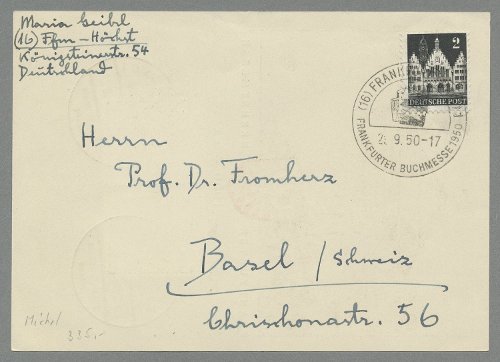 Maria Geibl
(16) Ffm - Höchst
Königsteinerstr. 54
Deutschland
2
DEUTSCHE POST
(16) FRANK
9.50-17
FRANKFURTER BUCHMESSE 1950
Herrn
Prof. Dr. Fromherz
Basel / Schweiz
Chrischonastr. 56
Michel
335,-